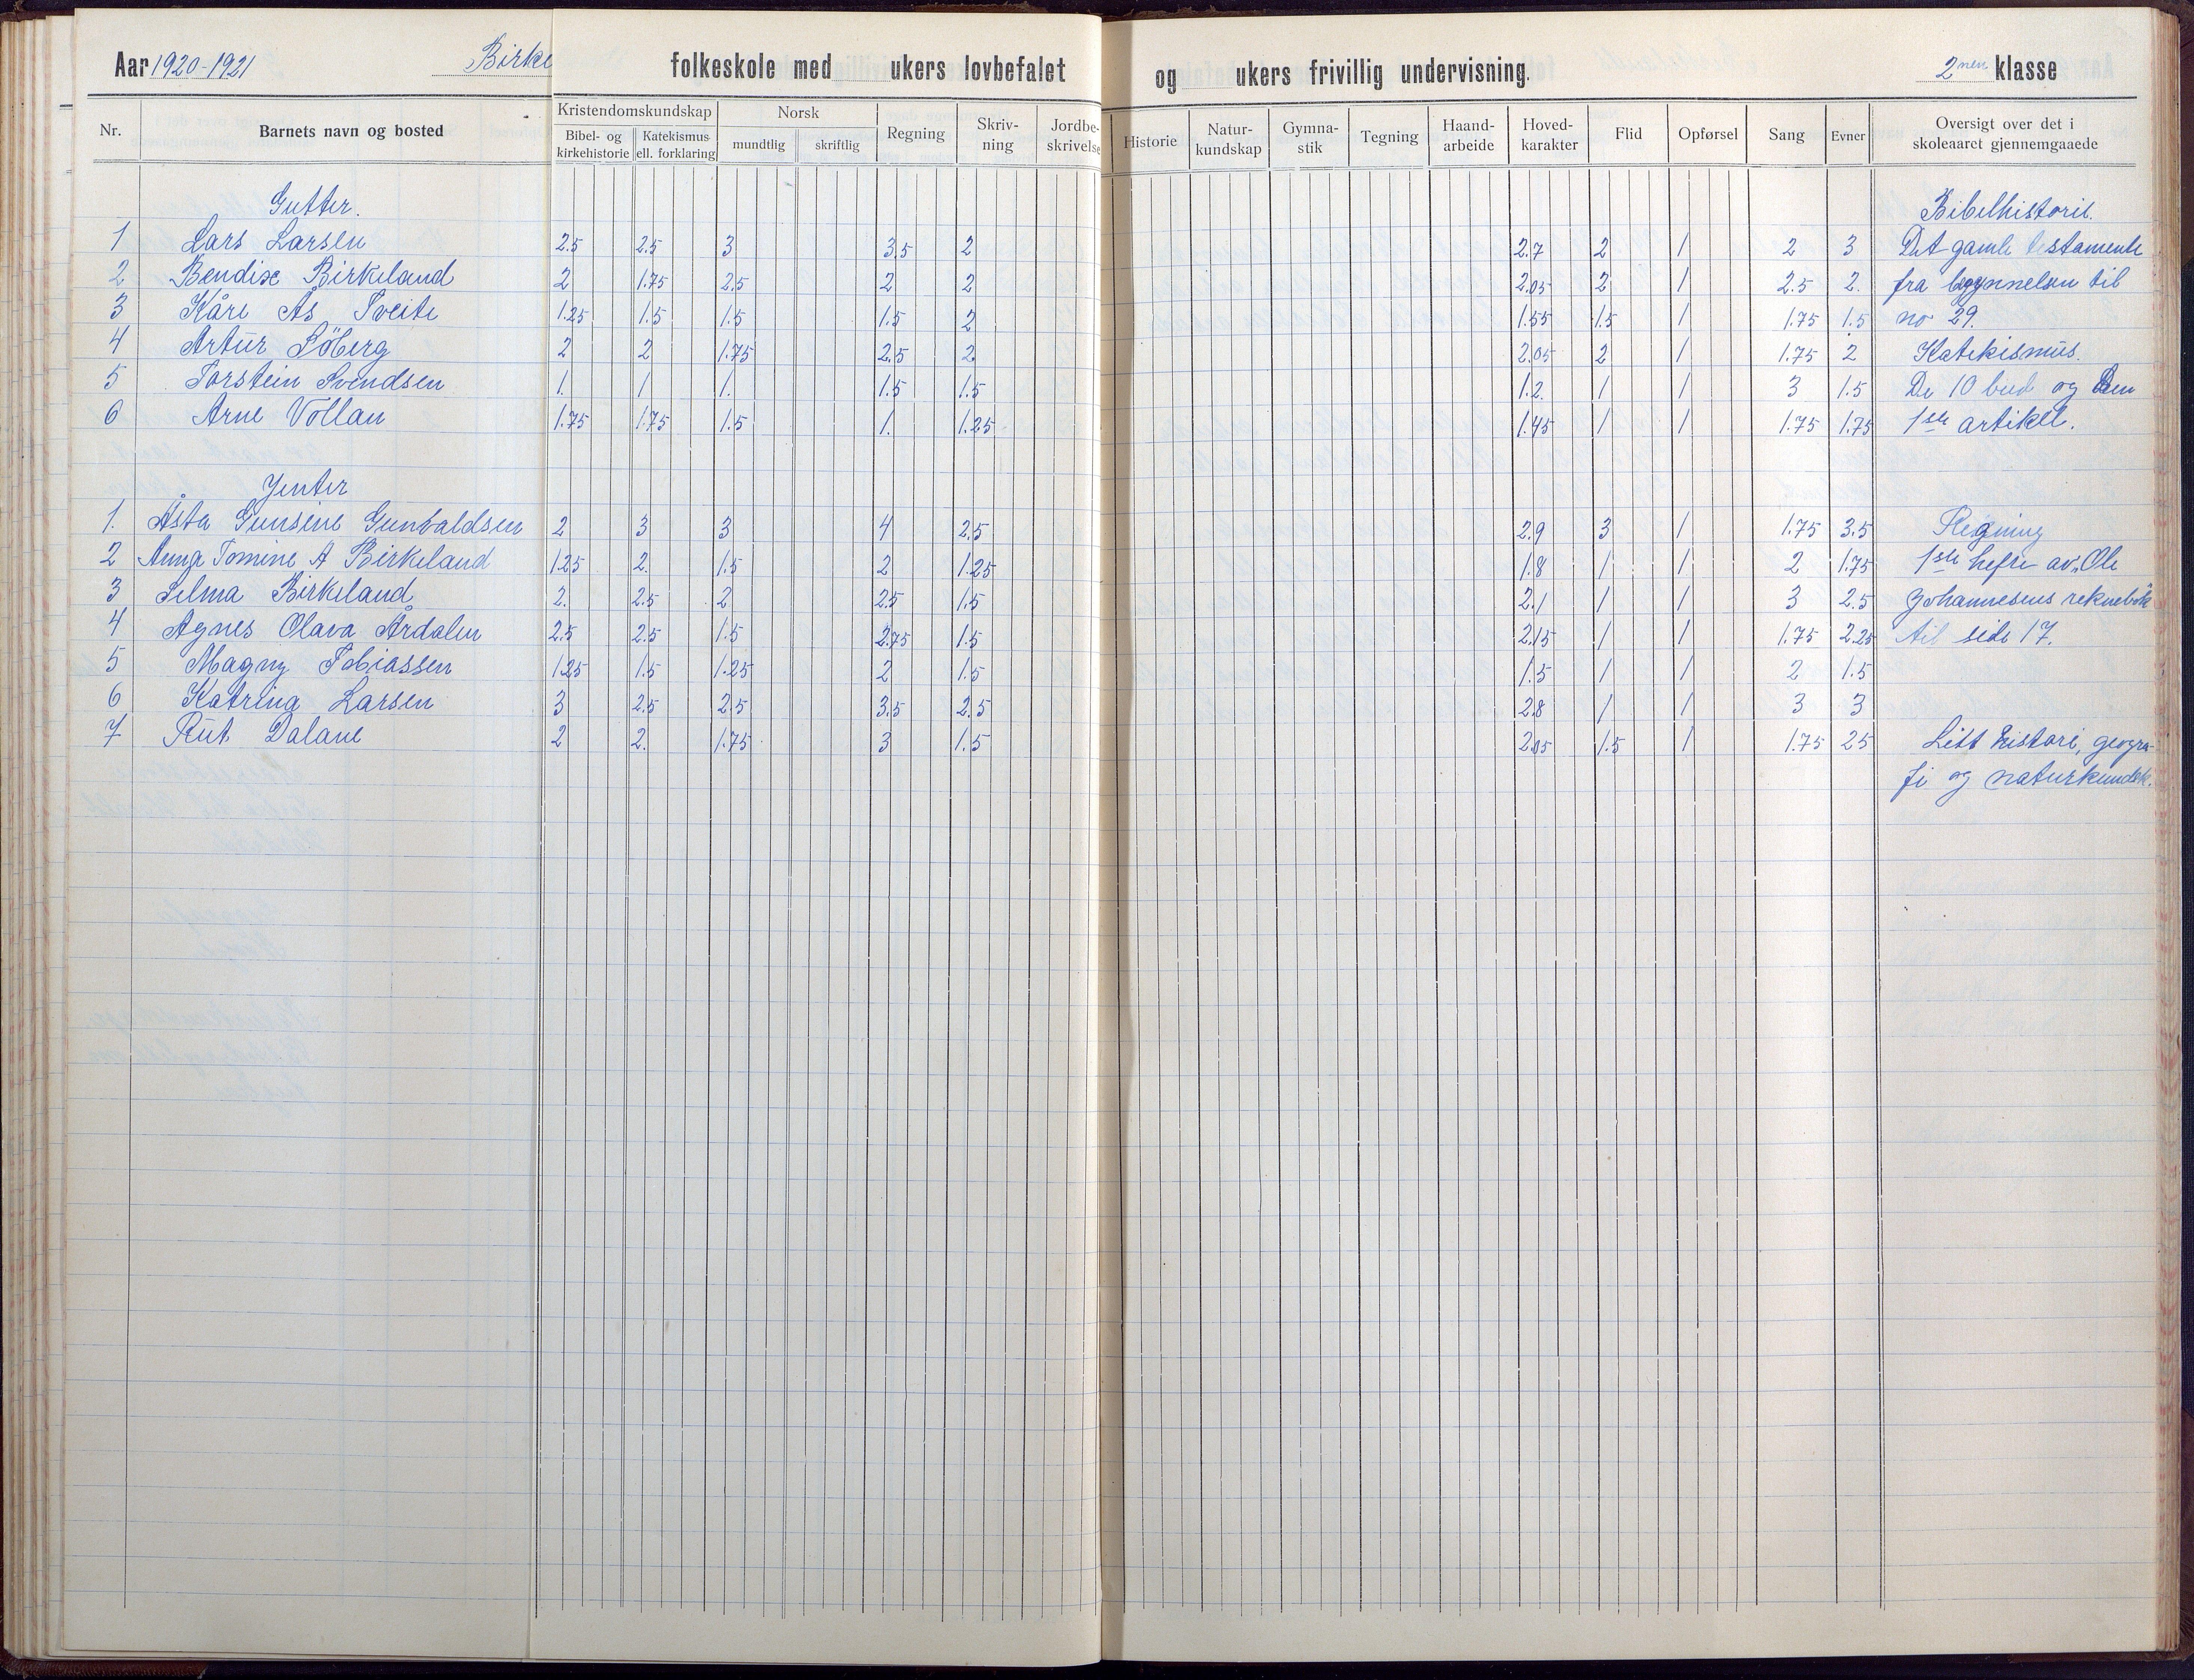 Aar 1920-1921 Birke folkeskole med ukers lovbefalet og ukers frivillig undervisning. 2nen klasse
Nr. Barnets navn og bosted Kristendomskundskap Bibel- og kirkehistorie Katekismus ell. forklaring Norsk mundtlig skriftlig Regning Skriv-ning Jordbe-skrivelse Historie Natur-kundskap Gymna-stik Tegning Haand-arbeide Hoved-karakter Flid Opførsel Sang Evner Oversigt over det i skoleaaret gjennemgaaede
Gutter. Bibelhistorie.
1 Lars Larsen 2.5 2.5 3 3.5 2 2.7 2 1 2 3 Det gamle testamente
2 Bendix Birkeland 2 1.75 2.5 2 2 2.05 2 1 2.5 2. fra begynnelsen til
3 Kåre Ås Tveite 1.25 1.5 1.5 1.5 2 1.55 1.5 1 1.75 1.5 no 29.
4 Artur Söberg 2 2 1.75 2.5 2 2.05 2 1 1.75 2 Katekismus.
5 Torstein Svendsen 1. 1 1. 1.5 1.5 1.2. 1 1 3 1.5 De 10 bud og den
6 Arne Vollan 1.75 1.75 1.5 1. 1.25 1.45 1 1 1.75 1.75 1ste artikel.
Jenter
1. Åsta Gunsine Gunvaldsen 2 3 3 4 2.5 2.9 3 1 1.75 3.5 Regning
2 Anna Tomine A Birkeland 1.25 2. 1.5 2 1.25 1.8 1 1 2 1.75 1ste hefte av „Ole
3 Selma Birkeland 2. 2.5 2 2.5 1.5 2.1 1 1 3 2.5 Johannesens reknebok
4 Agnes Olava Årdalen 2.5 2.5 1.5 2.75 1.5 2.15 1 1 1.75 2.25 til side 17.
5 Magny Tobiassen 1.25 1.5 1.25 2 1.5 1.5 1 1 2 1.5
6 Katrina Larsen 3 2.5 2.5 3.5 2.5 2.8 1 1 3 3
7 Rut Dalane 2 2. 1.75 3 1.5 2.05 1.5 1 1.75 2.5 Litt histori, geogra-
fi og naturkundsk.